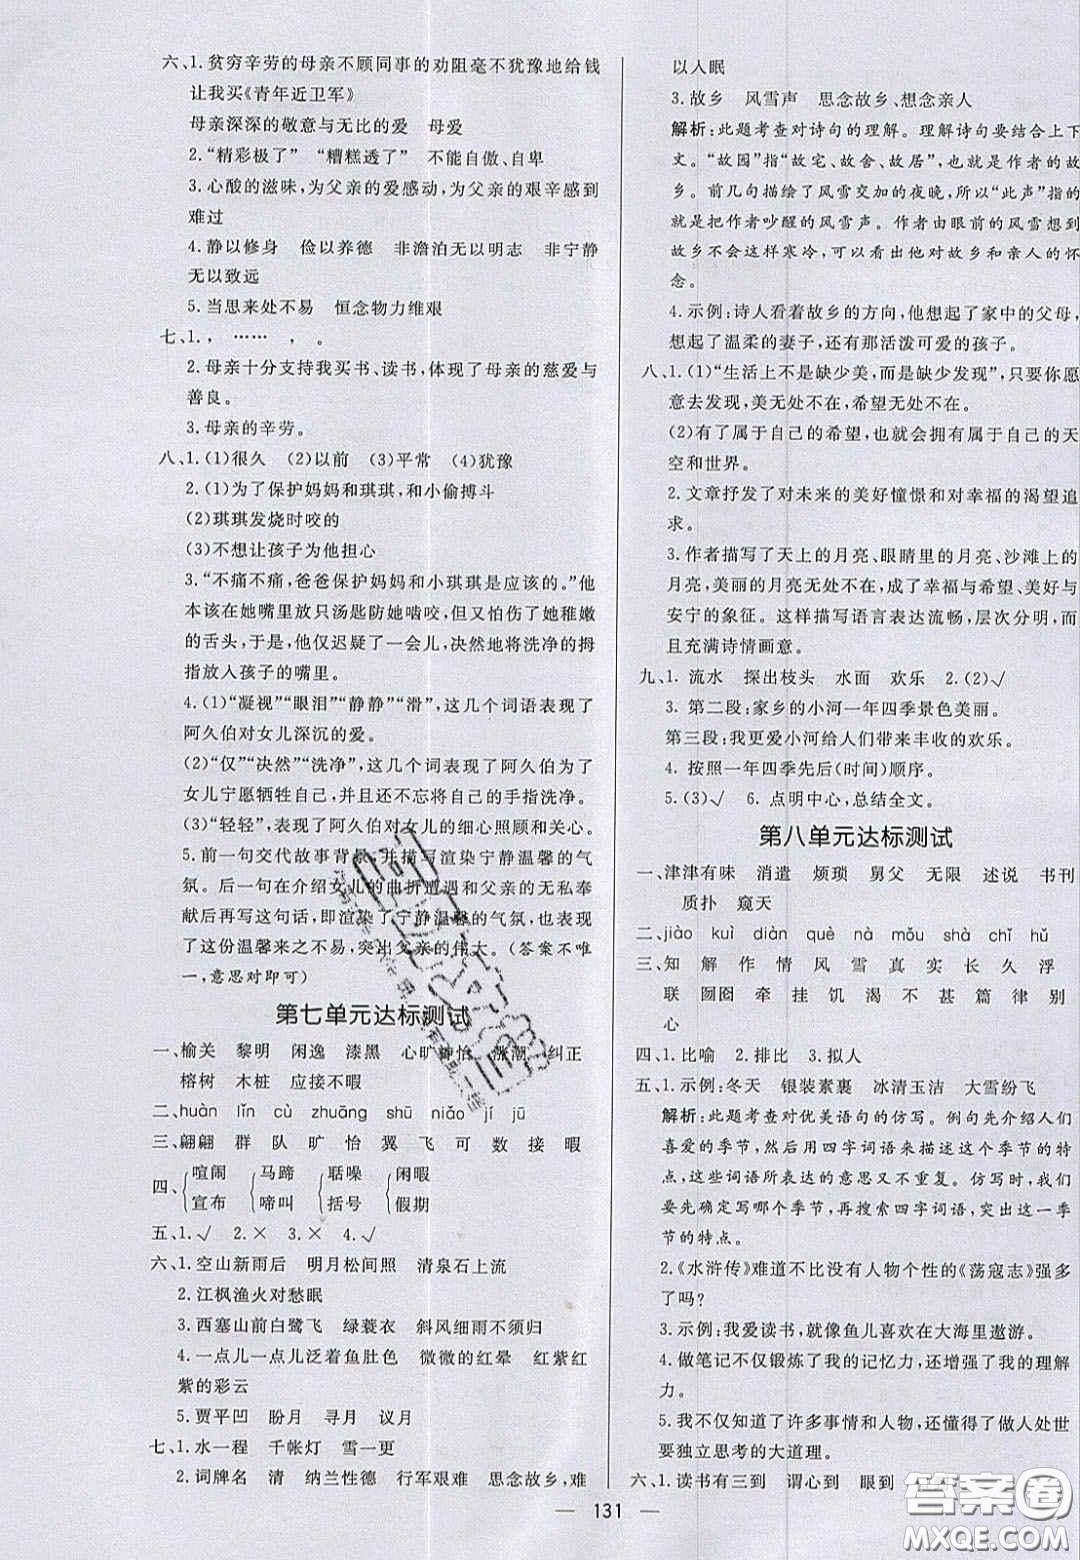 六、1. 贫穷辛劳的母亲不顾同事的劝阻毫不犹豫地给钱
让我买《青年近卫军》
母亲深深的敬意与无比的爱 母爱
2. “精彩极了” “糟糕透了” 不能自傲、自卑
3. 心酸的滋味,为父亲的爱感动,为父亲的艰辛感到
难过
4. 静以修身 俭以养德 非澹泊无以明志 非宁静
无以致远
5. 当思来处不易 恒念物力维艰
七、1. , …… , 。
2. 母亲十分支持我买书、读书,体现了母亲的慈爱与
善良。
3. 母亲的辛劳。
八、1. (1)很久 (2)以前 (3)平常 (4)犹豫
2. (1)为了保护妈妈和琪琪,和小偷搏斗
(2)琪琪发烧时咬的
(3)不想让孩子为他担心
3. “不痛不痛,爸爸保护妈妈和小琪琪是应该的。”他
本该在她嘴里放只汤匙防她啮咬,但又怕伤了她稚嫩
的舌头,于是,他仅迟疑了一会儿,决然地将洗净的拇
指放入孩子的嘴里。
4. (1)“凝视”“眼泪”“静静”“滑”,这几个词语表现了
阿久伯对女儿深沉的爱。
(2)“仅”“决然”“洗净”,这几个词表现了阿久伯为了
女儿宁愿牺牲自己,并且还不忘把自己的手指洗净。
(3)“轻轻”,表现了阿久伯对女儿的细心照顾和关心。
5. 前一句交代故事背景,并描写渲染宁静温馨的气
氛。后一句在介绍女儿的曲折遭遇和父亲的无私奉
献后再写这句话,即渲染了宁静温馨的气氛,又表现
了这份温馨来之不易,突出父亲的伟大。(答案不唯
一,意思对即可)
第七单元达标测试
一、榆关 黎明 闲逸 漆黑 心旷神怡 涨潮 纠正
榕树 木桩 应接不暇
二、huàn lǐn cù zhuāng shū niǎo jí jū
三、翩翩 群 队 旷 怡 翼 飞 可 数 接 暇
四、 喧闹 马蹄 聒噪 闲暇
宣布 啼叫 括号 假期
五、1. √ 2. × 3. × 4. √
六、1. 空山新雨后 明月松间照 清泉石上流
2. 江枫渔火对愁眠
3. 西塞山前白鹭飞 绿蓑衣 斜风细雨不须归
4. 一点儿一点儿泛着鱼肚色 微微的红晕 红紫红
紫的彩云
5. 贾平凹 盼月 寻月 议月
七、1. 水一程 千帐灯 雪一更
2. 词牌名 清 纳兰性德 行军艰难 思念故乡,难
以入眠
3. 故乡 风雪声 思念故乡、想念亲人
解析:此题考查对诗句的理解。理解诗句要结合上下
文。“故园”指“故宅、故舍、故居”,也就是作者的故
乡。前几句描绘了风雪交加的夜晚,所以“此声”指的
就是把作者吵醒的风雪声。作者由眼前的风雪想到
故乡不会这样寒冷,可以看出他对故乡和亲人的怀
念。
4. 示例:诗人看着故乡的方向,他想起了家中的父母,
想起了温柔的妻子,还有那活泼可爱的孩子。
八、1. (1)“生活上不是缺少美,而是缺少发现”,只要你愿
意去发现,美无处不在,希望无处不在。
(2)有了属于自己的希望,也就会拥有属于自己的天
空和世界。
2. 文章抒发了对未来的美好憧憬和对幸福的渴望追
求。
3. 作者描写了天上的月亮、眼睛里的月亮、沙滩上的
月亮,美丽的月亮无处不在,成了幸福与希望、美好与
安宁的象征。这样描写语言表达流畅,层次分明,而
且充满诗情画意。
九、1. 流水 探出枝头 水面 欢乐 2. (2)√
3. 第二段:家乡的小河一年四季景色美丽。
第三段:我更爱小河给人们带来丰收的欢乐。
4. 按照一年四季先后(时间)顺序。
5. (3)√ 6. 点明中心,总结全文。
第八单元达标测试
一、津津有味 消遣 烦琐 舅父 无限 述说 书刊
质朴 窥天
二、jiào kuì diàn què nà mǒu shà chǐ hǔ
三、知 解 作 情 风 雪 真 实 长 久 浮
联 囫囵 牵 挂 饥 渴 不 甚 篇 律 别
心
四、1. 比喻 2. 排比 3. 拟人
五、1. 示例:冬天 银装素裹 冰清玉洁 大雪纷飞
解析:此题考查对优美语句的仿写。例句先介绍人们
喜爱的季节,然后用四字词语来描述这个季节的特
点,这些词语所表达的意思不重复。仿写时,我们
要先确定写哪个季节,再搜索四字词语,突出这个季节
的特点。
2. 《水浒传》难道不比没有人物个性的《荡寇志》强多
了吗?
3. 示例:我爱读书,就像鱼儿喜欢在大海里遨游。
4. 做笔记不仅锻炼了我的记忆力,还增强了我的理解
力。
5. 我不仅知道了许多事情和人物,还懂得了做人处世
要独立思考的大道理。
六、1. 读书有三到 谓心到 眼到
— 131 —
答案圈
MXQE.COM